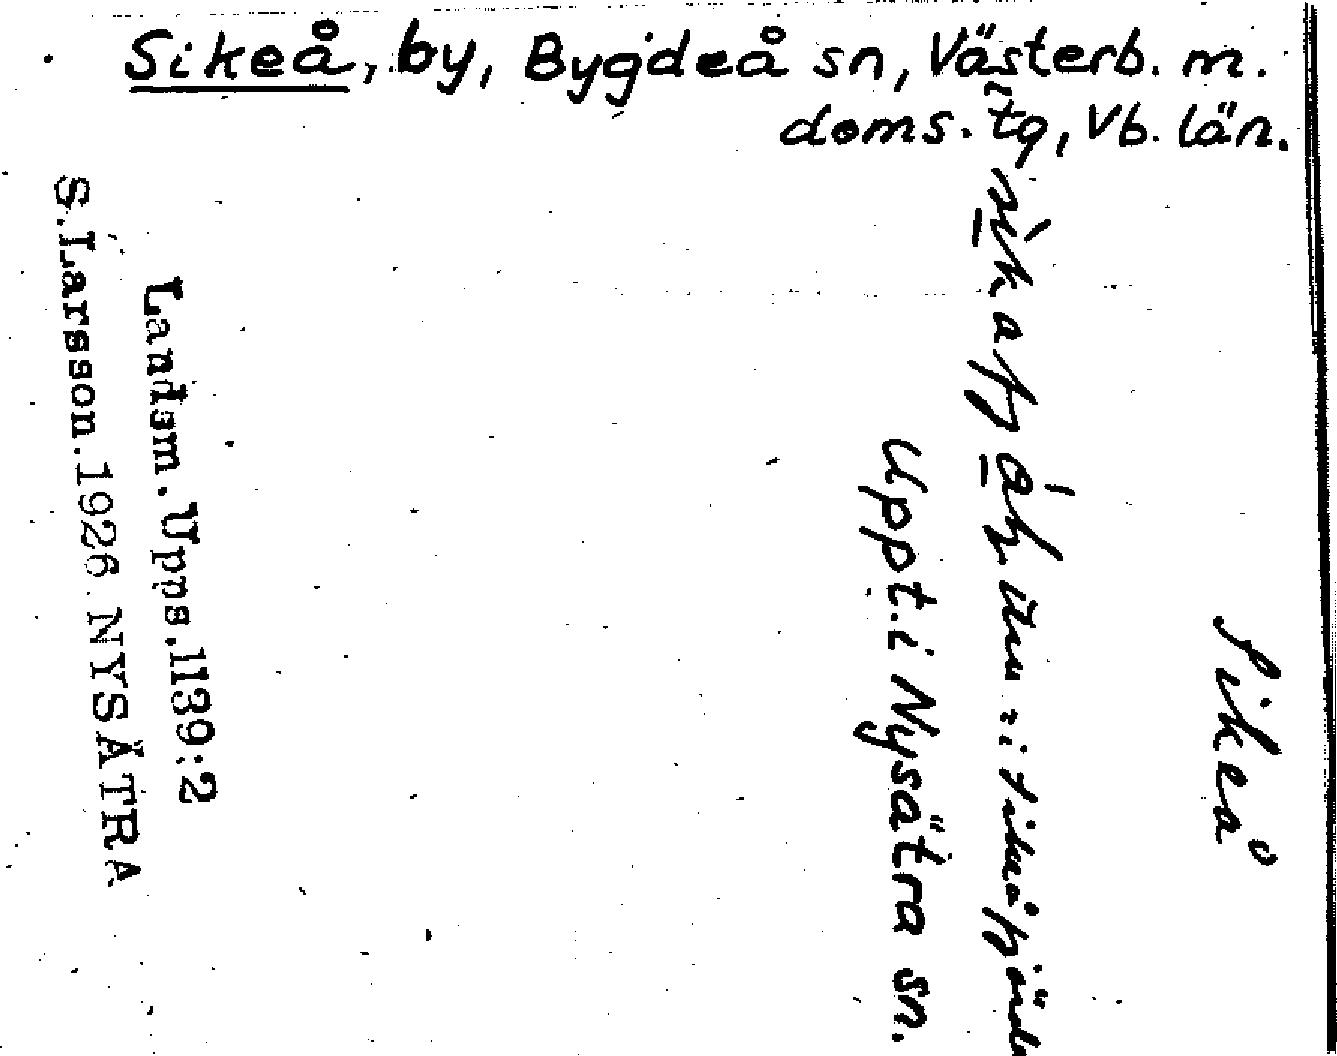 Sikeå, by, Bygdeå sn, Västerb. m.
doms. tg, Vb. län.
Sikeå
Uppt. i Nysätra sn.
Landsm. Upps. 1139:2
S. Larsson. 1926. NYSÄTRA